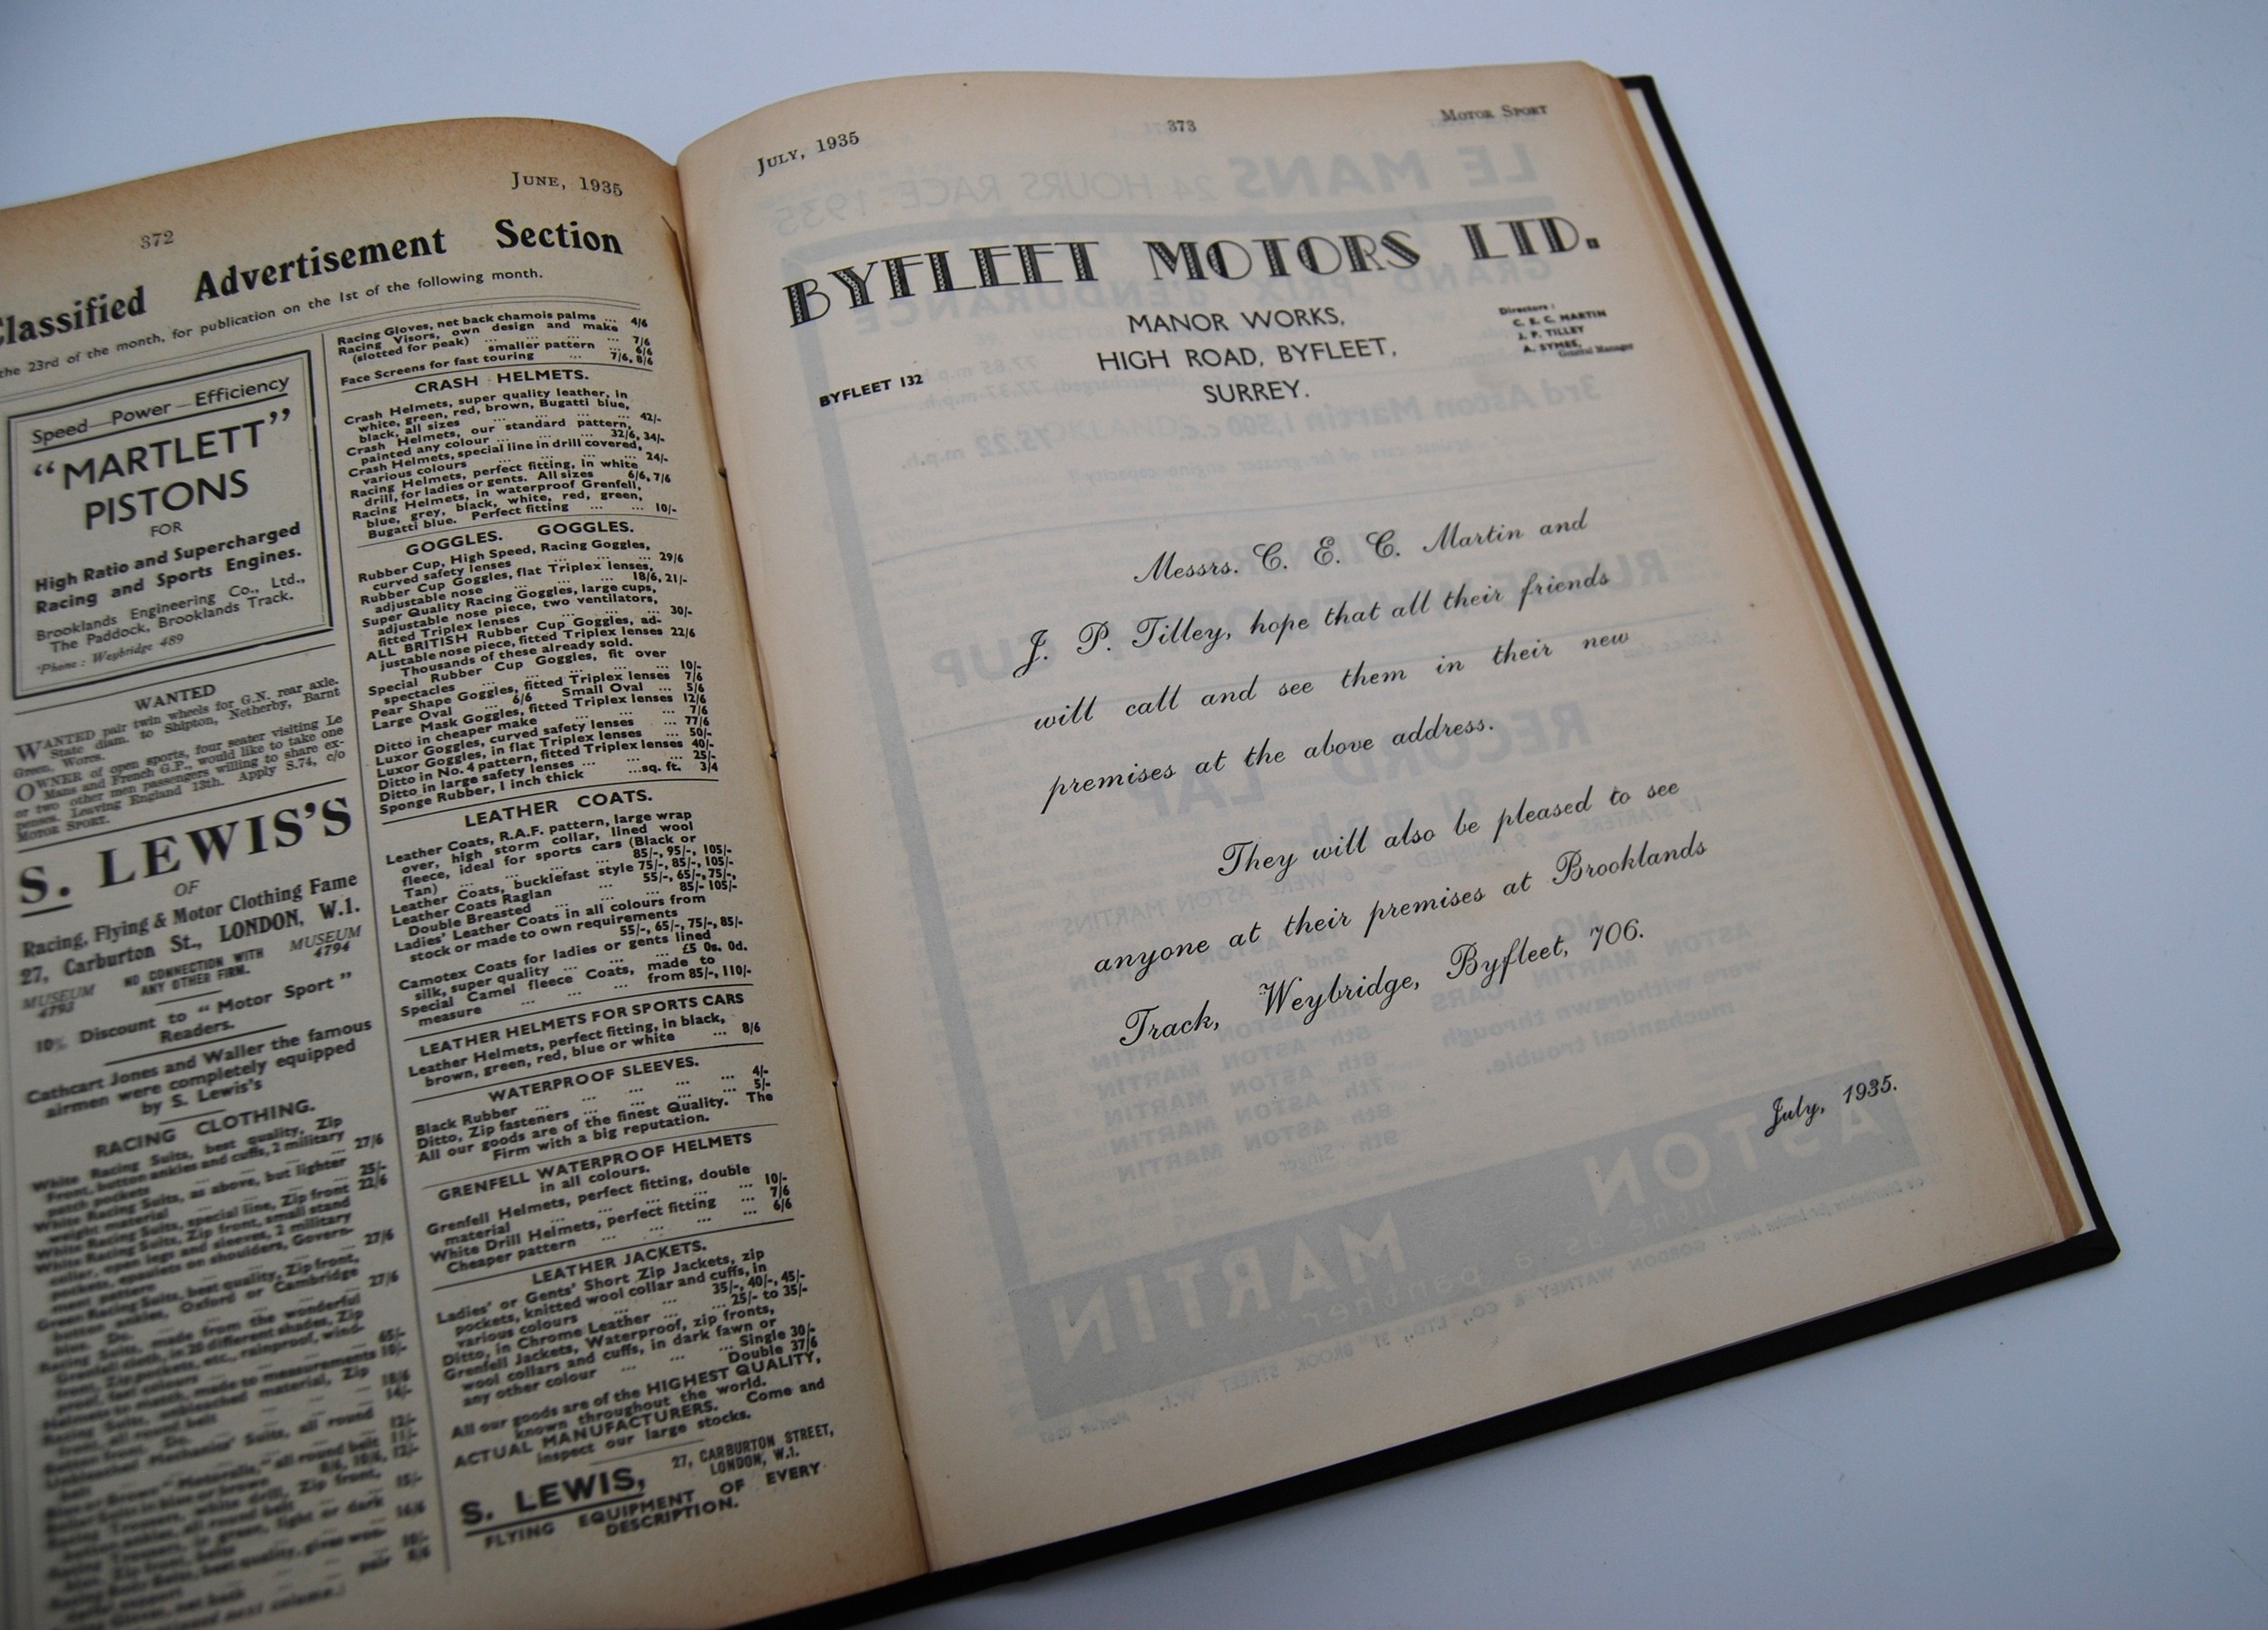 372
JUNE, 1935
Classified Advertisement Section
the 23rd of the month, for publication on the 1st of the following month.
Speed—Power—Efficiency
"MARTLETT"
PISTONS
FOR
High Ratio and Supercharged
Racing and Sports Engines.
Brooklands Engineering Co., Ltd.,
The Paddock, Brooklands Track.
'Phone: Weybridge 489
WANTED
WANTED pair twin wheels for G.N. rear axle.
State diam. to Shipton, Netherby, Barnt
Green, Worcs.
OWNER of open sports, four seater visiting Le
Mans and French G.P., would like to take one
or two other men passengers willing to share ex-
penses. Leaving England 13th. Apply S.74, c/o
MOTOR SPORT.
S. LEWIS'S
OF
Racing, Flying & Motor Clothing Fame
27, Carburton St., LONDON, W.1.
MUSEUM 4793 NO CONNECTION WITH ANY OTHER FIRM. MUSEUM 4794
10% Discount to "Motor Sport"
Readers.
Cathcart Jones and Waller the famous
airmen were completely equipped
by S. Lewis's
RACING CLOTHING.
White Racing Suits, best quality, Zip
Front, button ankles and cuffs, 2 military
patch pockets ... 27/6
White Racing Suits, as above, but lighter
weight material ... 25/-
White Racing Suits, special line, Zip front 22/6
White Racing Suits, Zip front, small stand
collar, open legs and sleeves, 2 military
pockets, epaulets on shoulders, Govern-
ment pattern ... 27/6
Green Racing Suits, best quality, Zip front,
button ankles, Oxford or Cambridge
blue. Do. ... 27/6
Racing Suits, made from the wonderful
Grenfell cloth, in 20 different shades, Zip
front, Zip pockets, etc., rainproof, wind-
proof, fast colours ... 65/-
Helmets to match, made to measurements 10/-
Racing Gloves, net back chamois palms ... 4/6
Racing Visors, own design and make
(slotted for peak) ... 7/6
smaller pattern ... 6/6
Face Screens for fast touring ... 7/6, 8/6
CRASH HELMETS.
Crash Helmets, super quality leather, in
white, green, red, brown, Bugatti blue,
black, all sizes ... 42/-
Crash Helmets, our standard pattern,
painted any colour ... 32/6, 34/-
Crash Helmets, special line in drill covered,
various colours ... 24/-
Racing Helmets, perfect fitting, in white
drill, for ladies or gents. All sizes 6/6, 7/6
Racing Helmets, in waterproof Grenfell,
blue, grey, black, white, red, green,
Bugatti blue. Perfect fitting ... 10/-
GOGGLES. GOGGLES.
Rubber Cup, High Speed, Racing Goggles,
curved safety lenses ... 29/6
Rubber Cup Goggles, flat Triplex lenses,
adjustable nose ... 18/6, 21/-
Super Quality Racing Goggles, large cups,
adjustable nose piece, two ventilators,
fitted Triplex lenses ... 30/-
ALL BRITISH Rubber Cup Goggles, ad-
justable nose piece, fitted Triplex lenses 22/6
Thousands of these already sold.
Special Rubber Cup Goggles, fit over
spectacles ... 10/-
Pear Shape Goggles, fitted Triplex lenses 7/6
Large Oval ... 6/6 Small Oval ... 5/6
Mask Goggles, fitted Triplex lenses 12/6
Ditto in cheaper make ... 7/6
Luxor Goggles, curved safety lenses ... 77/6
Luxor Goggles, in flat Triplex lenses ... 50/-
Ditto in No. 4 pattern, fitted Triplex lenses 40/-
Ditto in large safety lenses ... 25/-
Sponge Rubber, 1 inch thick ...sq. ft. 3/4
LEATHER COATS.
Leather Coats, R.A.F. pattern, large wrap
over, high storm collar, lined wool
fleece, ideal for sports cars (Black or
Tan) ... 85/-, 95/-, 105/-
Leather Coats, bucklefast style 75/-, 85/-, 105/-
Leather Coats Raglan ... 55/-, 65/-, 75/-,
Double Breasted ... 85/- 105/-
Ladies' Leather Coats in all colours from
stock or made to own requirements
55/-, 65/-, 75/-, 85/-
Camotex Coats for ladies or gents lined
silk, super quality ... £5 0s. 0d.
Special Camel fleece Coats, made to
measure ... from 85/-, 110/-
LEATHER HELMETS FOR SPORTS CARS
Leather Helmets, perfect fitting, in black,
brown, green, red, blue or white ... 8/6
WATERPROOF SLEEVES.
Black Rubber ... 4/-
Ditto, Zip fasteners ... 5/-
All our goods are of the finest Quality. The
Firm with a big reputation.
GRENFELL WATERPROOF HELMETS
in all colours.
Grenfell Helmets, perfect fitting, double
material ... 10/-
White Drill Helmets, perfect fitting ... 7/6
Cheaper pattern ... 6/6
LEATHER JACKETS.
Ladies' or Gents' Short Zip Jackets, zip
pockets, knitted wool collar and cuffs, in
various colours ... 35/-, 40/-, 45/-
Ditto, in Chrome Leather ... 25/- to 35/-
Grenfell Jackets, Waterproof, zip fronts,
wool collars and cuffs, in dark fawn or
any other colour ... Single 30/-
Double 37/6
All our goods are of the HIGHEST QUALITY,
known throughout the world.
ACTUAL MANUFACTURERS. Come and
inspect our large stocks.
S. LEWIS, 27, CARBURTON STREET,
LONDON, W.1.
FLYING EQUIPMENT OF EVERY
DESCRIPTION.
JULY, 1935
373
MOTOR SPORT
BYFLEET MOTORS LTD.
MANOR WORKS,
HIGH ROAD, BYFLEET,
SURREY.
BYFLEET 132
Directors:
C. E. C. MARTIN
J. P. TILLEY
A. SYMES,
General Manager
Messrs. C. E. C. Martin and
J. P. Tilley, hope that all their friends
will call and see them in their new
premises at the above address.
They will also be pleased to see
anyone at their premises at Brooklands
Track, Weybridge, Byfleet, 706.
July, 1935.